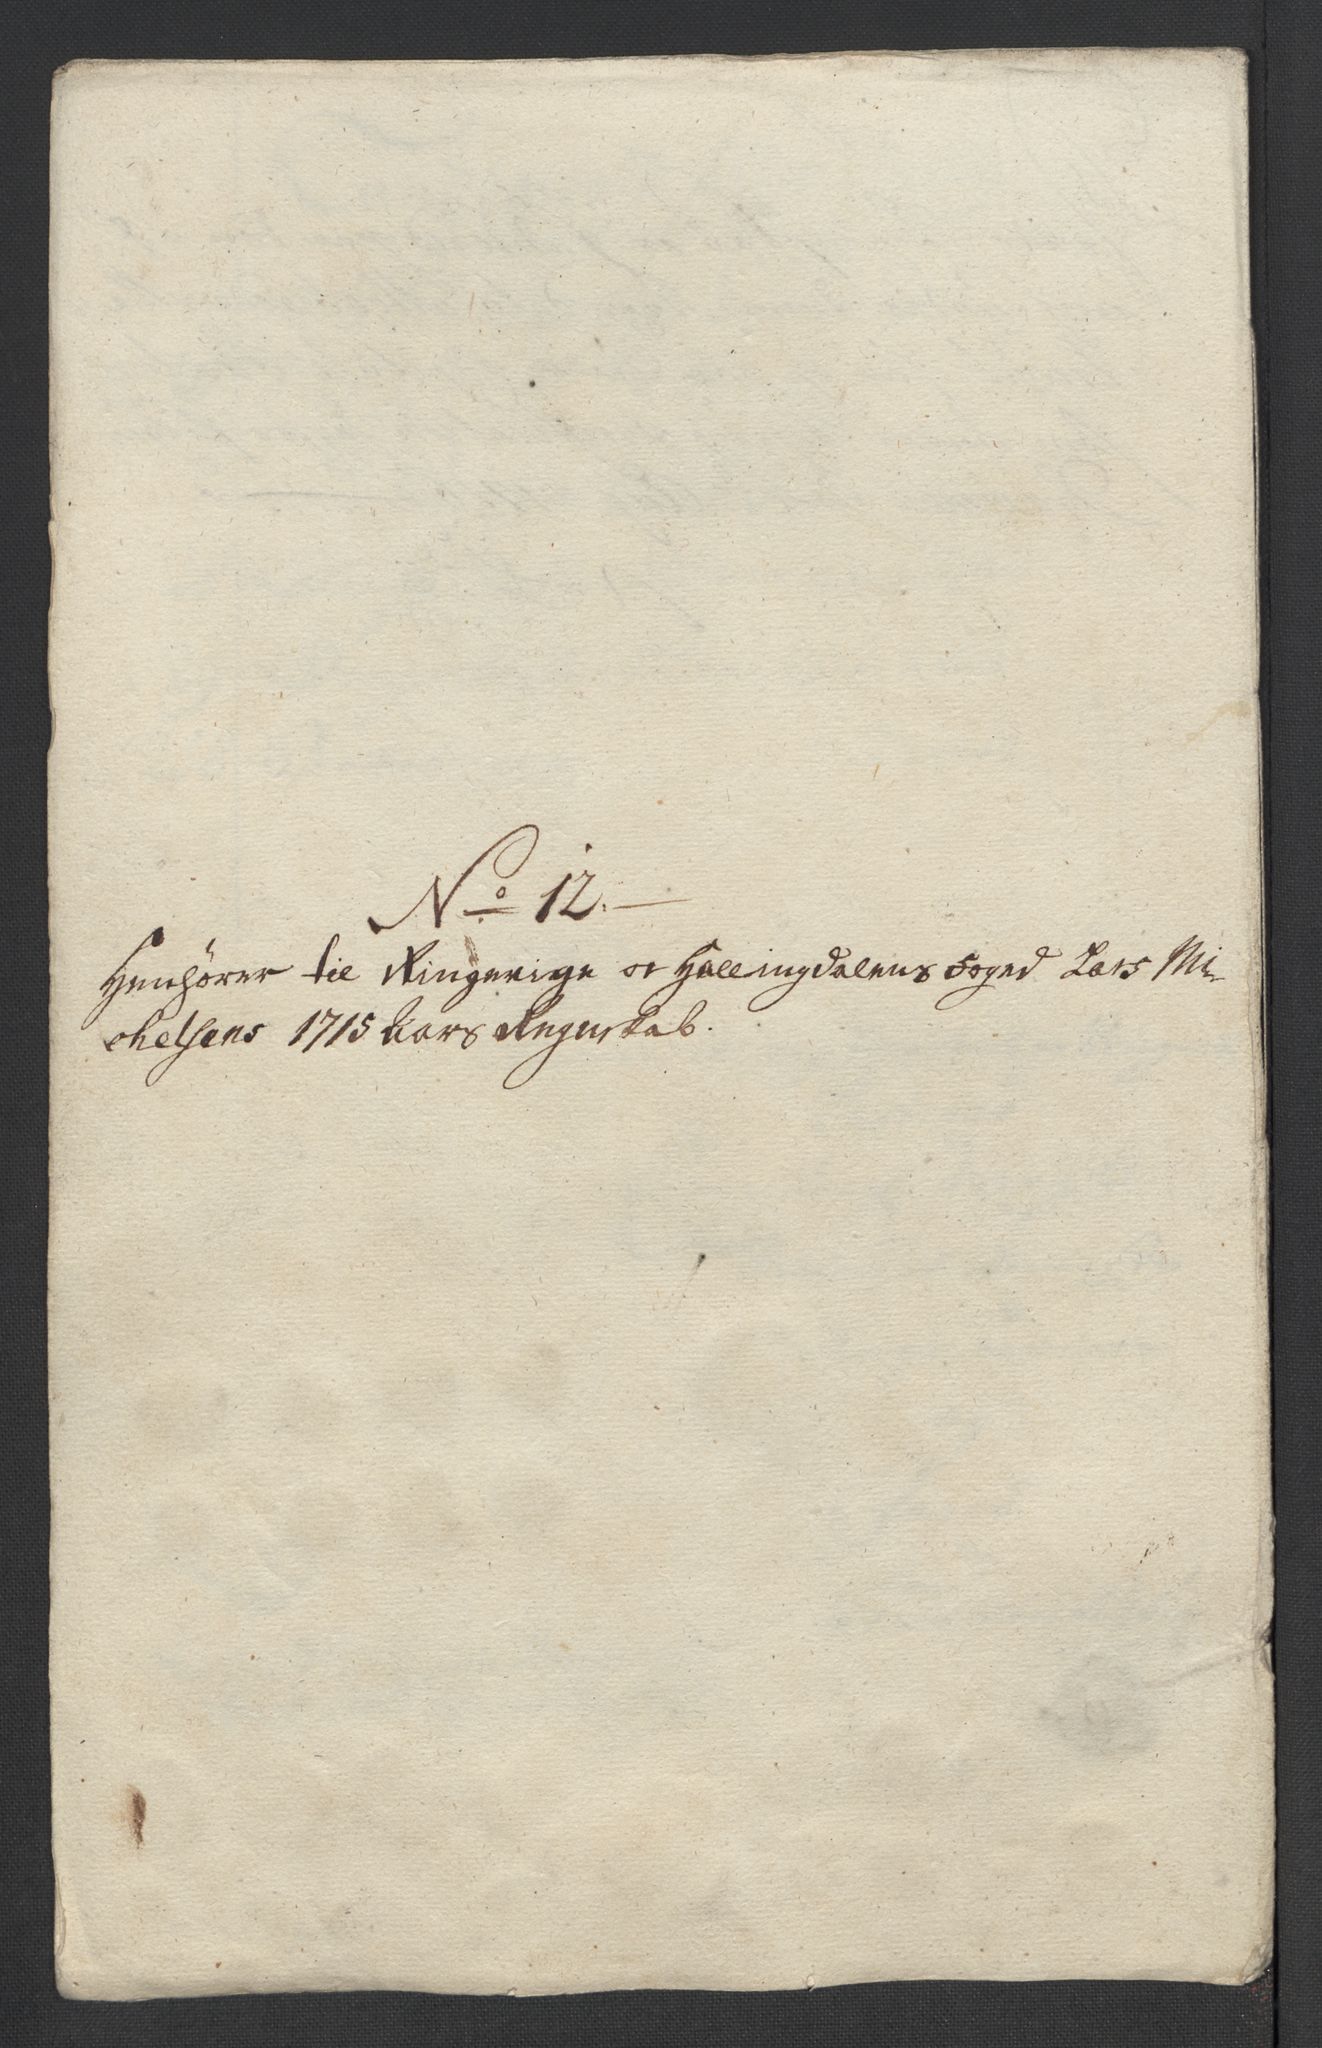 No 12.
Henhörer til Ringerige oc Hallingdalens foged Lars Mi-
chelsens 1715 Aars Regnskab.